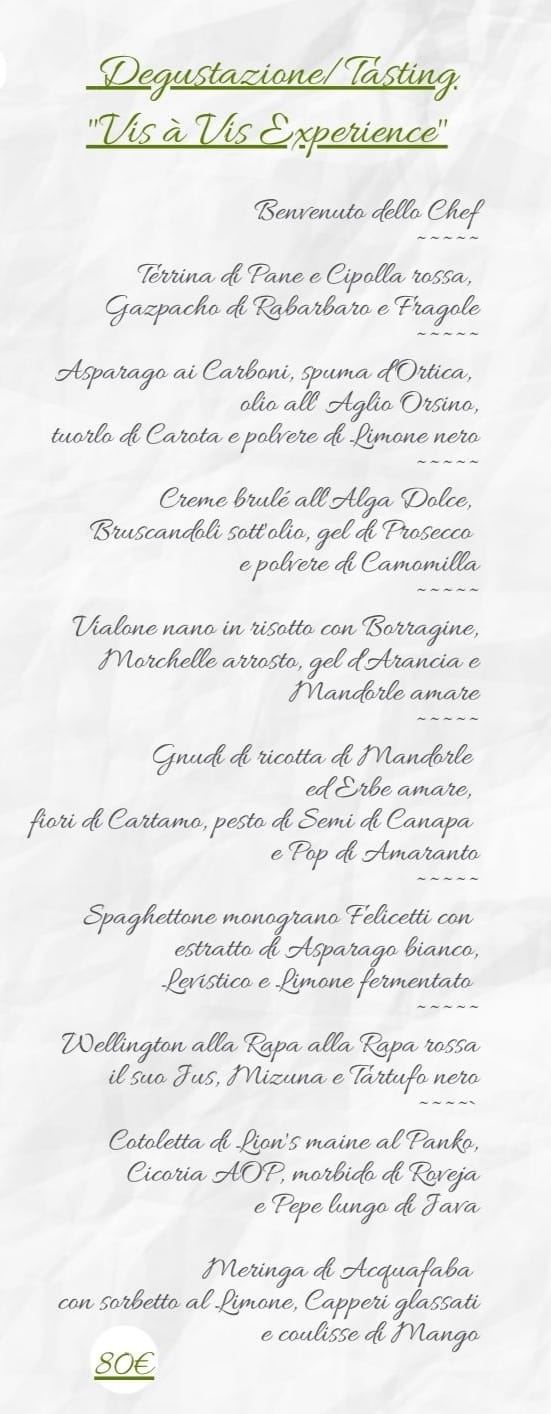 Degustazione/Tasting
"Vis à Vis Experience"
Benvenuto dello Chef
~~~~~
Terrina di Pane e Cipolla rossa,
Gazpacho di Rabarbaro e Fragole
~~~~~
Asparago ai Carboni, spuma d'Ortica,
olio all' Aglio Orsino,
tuorlo di Carota e polvere di Limone nero
~~~~~
Creme brulé all'Alga Dolce,
Bruscandoli sott'olio, gel di Prosecco
e polvere di Camomilla
~~~~~
Vialone nano in risotto con Borragine,
Morchelle arrosto, gel d'Arancia e
Mandorle amare
~~~~~
Gnudi di ricotta di Mandorle
ed Erbe amare,
fiori di Cartamo, pesto di Semi di Canapa
e Pop di Amaranto
~~~~~
Spaghettone monograno Felicetti con
estratto di Asparago bianco,
Levistico e Limone fermentato
~~~~~
Wellington alla Rapa alla Rapa rossa
il suo Jus, Mizuna e Tartufo nero
~~~~`
Cotoletta di Lion's maine al Panko,
Cicoria AOP, morbido di Roveja
e Pepe lungo di Java
Meringa di Acquafaba
con sorbetto al Limone, Capperi glassati
e coulisse di Mango
80€